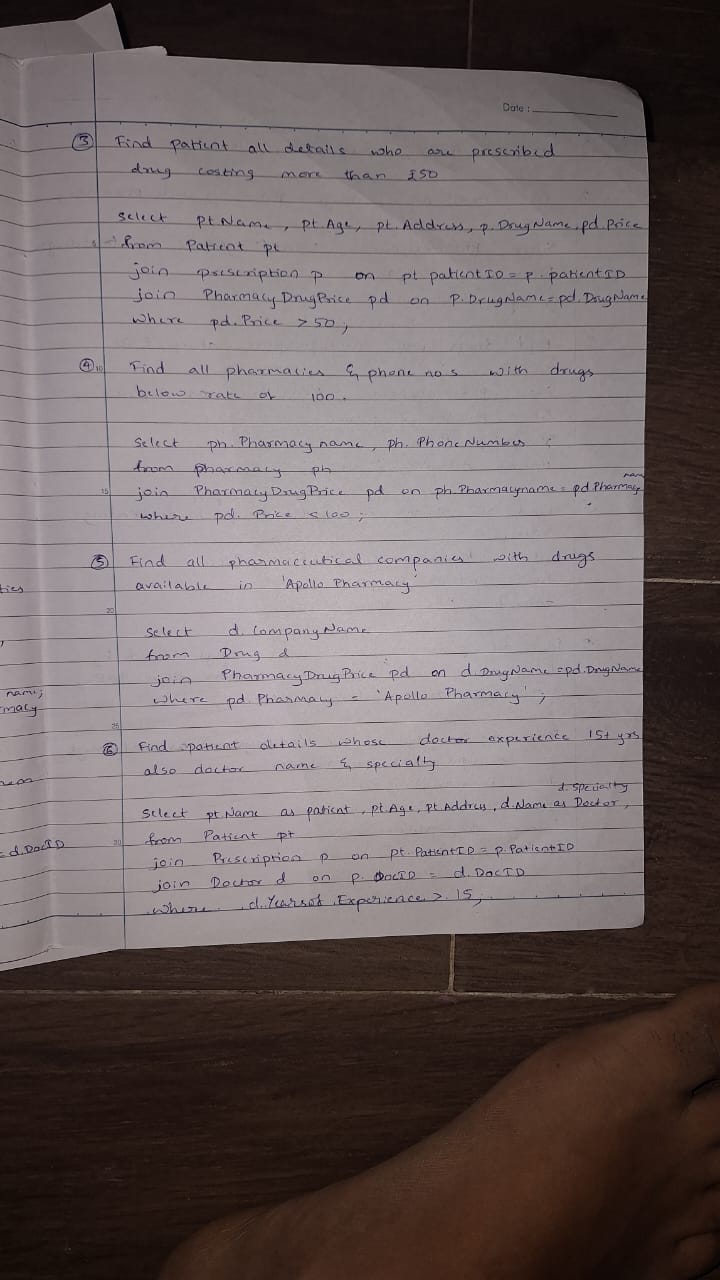 Date :
③ Find patient all details who are prescribed
drug costing more than 250
Select pt.Name, pt.Age, pt.Address, p.DrugName, pd.Price
from Patient pt
join prescription p on pt patientID = p.patientID
join PharmacyDrugPrice pd on P.DrugName = pd.DrugName
where pd.Price > 50;
④ 10 Find all pharmacies & phone nos with drugs
below rate of 100.
Select ph.Pharmacy name, ph.PhoneNumber ;
from pharmacy ph
name
15 join PharmacyDrugPrice pd on ph.Pharmacyname = pd.Pharmacy
where pd.Price < 100;
⑤ Find all pharmaceutical companies with drugs
ties
available in 'Apollo Pharmacy'
20
Select d.CompanyName
from Drug d
join PharmacyDrugPrice pd on d.DrugName = pd.DrugName
name;
where pd Pharmacy = 'Apollo Pharmacy';
macy
25
⑥ Find patient details whose doctor experience 15+ yrs
also doctor name & specialty
d.Specialty
Select pt.Name as patient, pt.Age, pt.Address, d.Name as Doctor,
30 from Patient pt
= d.DocID
join Prescription p on pt.PatientID = p.PatientID
join Doctor d on p.DocID = d.DocID
where d.YearsofExperience > 15;